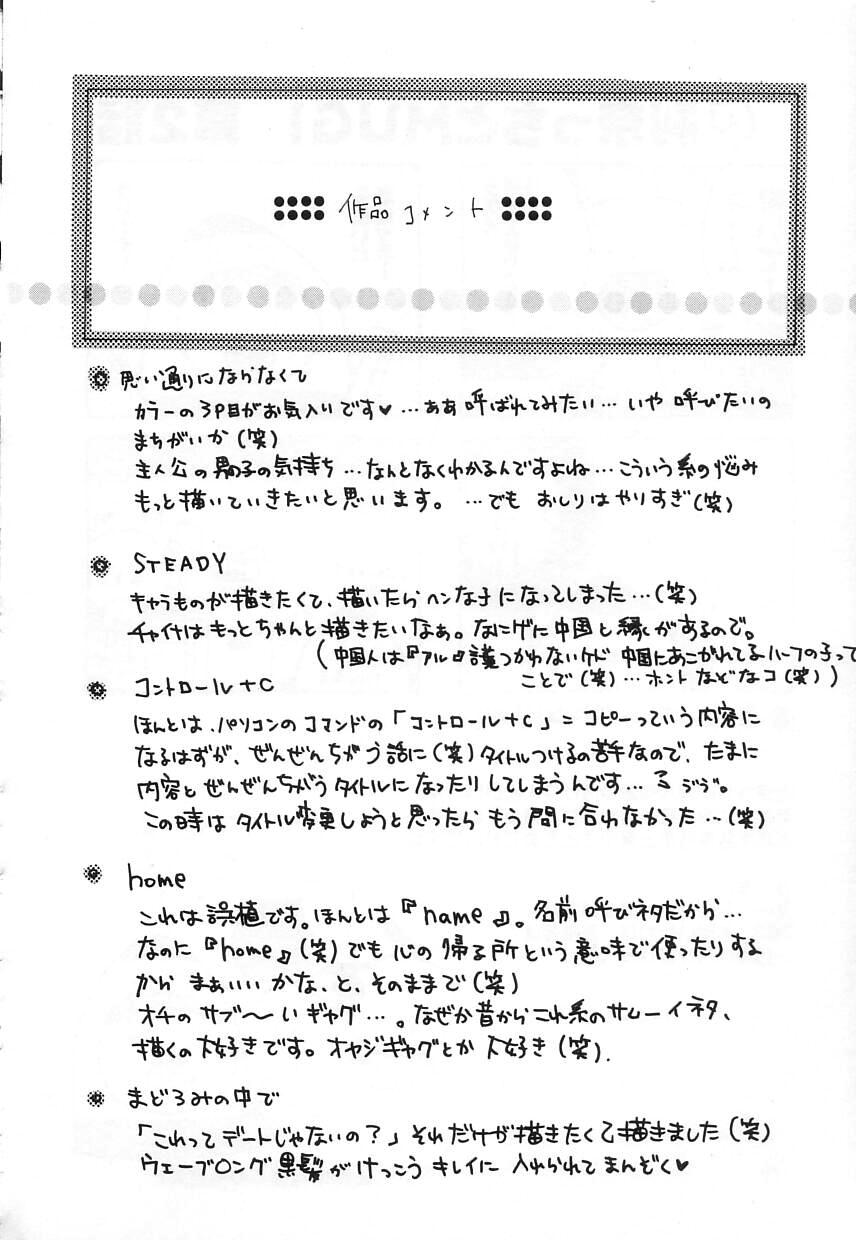 作品コメント
思い通りにならなくて
カラーの3P目がお気入りです♥…ああ呼ばれてみたい…いや呼びたいの
まちがいか(笑)
主人公の男の子の気持ち…なんとなくわかるんですよね…こういう系の悩み
もっと描いていきたいと思います。…でもおしりはやりすぎ(笑)
STEADY
キャラものが描きたくて、描いたらヘンな子になってしまった…(笑)
チャイナはもっとちゃんと描きたいなぁ。なにゲに中国と縁があるので。
(中国人は『アル』語つかわないケド 中国にあこがれてるハーフの子って
ことで(笑)…ホントなどなコ(笑))
コントロール+C
ほんとは、パソコンのコマンドの「コントロール+C」=コピーっていう内容に
なるはずが、ぜんぜんちがう話に(笑)タイトルつけるの苦手なので、たまに
内容とぜんぜんちがうタイトルになったりしてしまうんです…
この時はタイトル変更しようと思ったらもう間に合わなかった…(笑)
home
これは誤植です。ほんとは『name』。名前呼びネタだから…
なのに『home』(笑)でも心の帰る所という意味で使ったりする
から まぁいいかな、と、そのままで(笑)
オチのサブ〜いギャグ…。なぜか昔からこれ系のサムーイネタ、
描くの大好きです。オヤジギャグとか大好き(笑).
まどろみの中で
「これってデートじゃないの?」それだけが描きたくて描きました(笑)
ウェーブロング黒髪がけっこうキレイに入れられてまんぞく♥